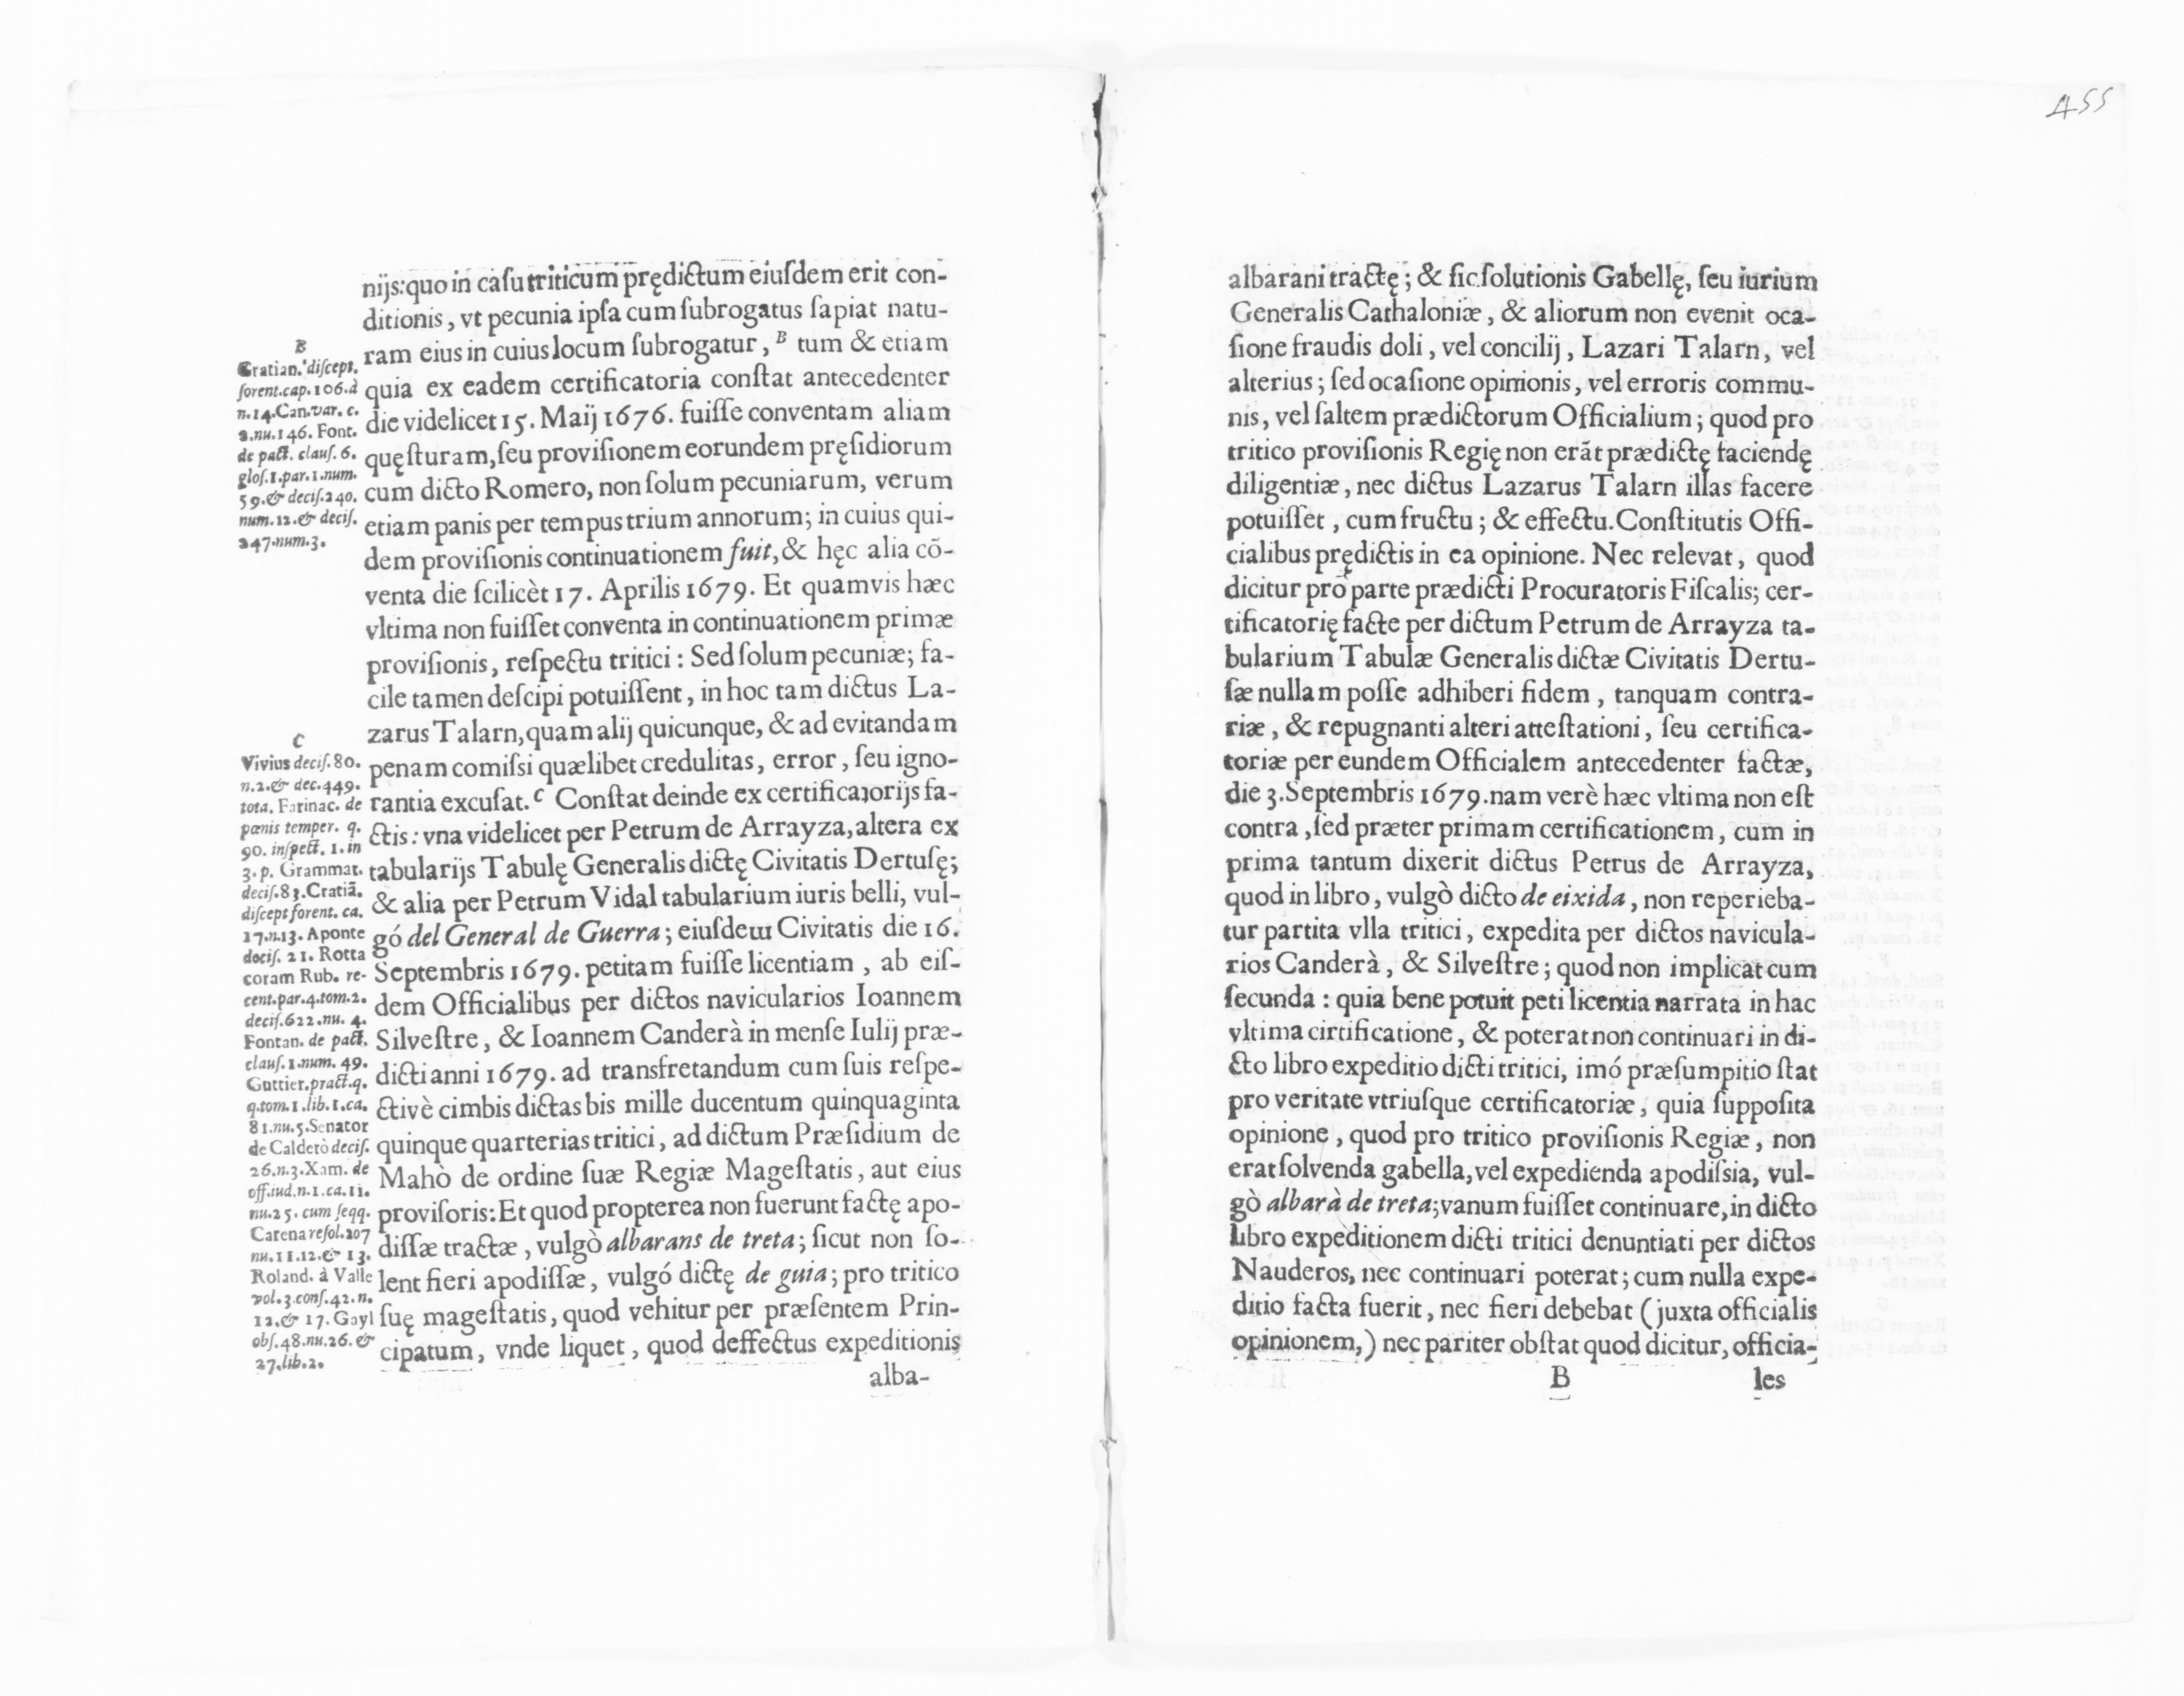 nijs: quo in casu triticum prędictum eiusdem erit con-
ditionis, vt pecunia ipsa cum subrogatus sapiat natu-
ram eius in cuius locum subrogatur, B tum & etiam
quia ex eadem certificatoria constat antecedenter
die videlicet 15. Maij 1676. fuisse conventam aliam
quęsturam, seu provisionem eorundem pręsidiorum
cum dicto Romero, non solum pecuniarum, verum
etiam panis per tempus trium annorum; in cuius qui-
dem provisionis continuationem fuit, & hęc alia cõ-
venta die scilicèt 17. Aprilis 1679. Et quamvis hæc
vltima non fuisset conventa in continuationem primæ
provisionis, respectu tritici: Sed solum pecuniæ; fa-
cile tamen descipi potuissent, in hoc tam dictus La-
zarus Talarn, quam alij quicunque, & ad evitandam
penam comissi quælibet credulitas, error, seu igno-
rantia excusat. C Constat deinde ex certificatorijs fa-
ctis: vna videlicet per Petrum de Arrayza, altera ex
tabularijs Tabulę Generalis dictę Civitatis Dertusę;
& alia per Petrum Vidal tabularium iuris belli, vul-
gó del General de Guerra; eiusdem Civitatis die 16.
Septembris 1679. petitam fuisse licentiam, ab eis-
dem Officialibus per dictos navicularios Ioannem
Silvestre, & Ioannem Canderà in mense Iulij præ-
dicti anni 1679. ad transfretandum cum suis respe-
ctivè cimbis dictas bis mille ducentum quinquaginta
quinque quarterias tritici, ad dictum Præsidium de
Mahò de ordine suæ Regiæ Magestatis, aut eius
provisoris: Et quod propterea non fuerunt factę apo-
dissæ tractæ, vulgò albarans de treta; sicut non so-
lent fieri apodissæ, vulgó dictę de guia; pro tritico
suę magestatis, quod vehitur per præsentem Prin-
cipatum, vnde liquet, quod deffectus expeditionis
alba-
B
Gratian. discept.
forent. cap. 106. à
n. 14. Can. var. c.
2. nu. 146. Font.
de pact. claus. 6.
glos. 1. par. 1. num.
59. & decis. 240.
num. 12. & decis.
247. num. 3.
C
Vivius decis. 80.
n. 2. & dec. 449.
tota. Farinac. de
pœnis temper. q.
90. inspect. 1. in
3. p. Grammat.
decis. 83. Cratiã.
discept forent. ca.
17. n. 13. Aponte
docis. 21. Rotta
coram Rub. re-
cent. par. 4. tom. 2.
decis. 622. nu. 4.
Fontan. de pact.
claus. 1. num. 49.
Guttier. pract. q.
q. tom. 1. lib. 1. ca.
81. nu. 5. Senator
de Calderò decis.
26. n. 3. Xam. de
off. iud. n. 1. ca. 11.
nu. 25. cum seqq.
Carena resol. 207
nu. 11. 12. & 13.
Roland. à Valle
vol. 3. cons. 42. n.
12. & 17. Gayl
obs. 48. nu. 26. &
27. lib. 2.
455
albarani tractę; & sic solutionis Gabellę, seu iurium
Generalis Cathaloniæ, & aliorum non evenit oca-
sione fraudis doli, vel concilij, Lazari Talarn, vel
alterius; sed ocasione opinionis, vel erroris commu-
nis, vel saltem prædictorum Officialium; quod pro
tritico provisionis Regię non erãt prædictę faciendę
diligentiæ, nec dictus Lazarus Talarn illas facere
potuisset, cum fructu; & effectu. Constitutis Offi-
cialibus prędictis in ea opinione. Nec relevat, quod
dicitur pro parte prædicti Procuratoris Fiscalis; cer-
tificatorię facte per dictum Petrum de Arrayza ta-
bularium Tabulæ Generalis dictæ Civitatis Dertu-
sæ nullam posse adhiberi fidem, tanquam contra-
riæ, & repugnanti alteri attestationi, seu certifica-
toriæ per eundem Officialem antecedenter factæ,
die 3. Septembris 1679. nam verè hæc vltima non est
contra, sed præter primam certificationem, cum in
prima tantum dixerit dictus Petrus de Arrayza,
quod in libro, vulgò dicto de eixida, non reperieba-
tur partita vlla tritici, expedita per dictos navicula-
rios Canderà, & Silvestre; quod non implicat cum
secunda: quia bene potuit peti licentia narrata in hac
vltima cirtificatione, & poterat non continuari in di-
cto libro expeditio dicti tritici, imó præsumpitio stat
pro veritate vtriusque certificatoriæ, quia supposita
opinione, quod pro tritico provisionis Regiæ, non
erat solvenda gabella, vel expedienda apodissia, vul-
gò albarà de treta; vanum fuisset continuare, in dicto
libro expeditionem dicti tritici denuntiati per dictos
Nauderos, nec continuari poterat; cum nulla expe-
ditio facta fuerit, nec fieri debebat (juxta officialis
opinionem,) nec pariter obstat quod dicitur, officia-
B les